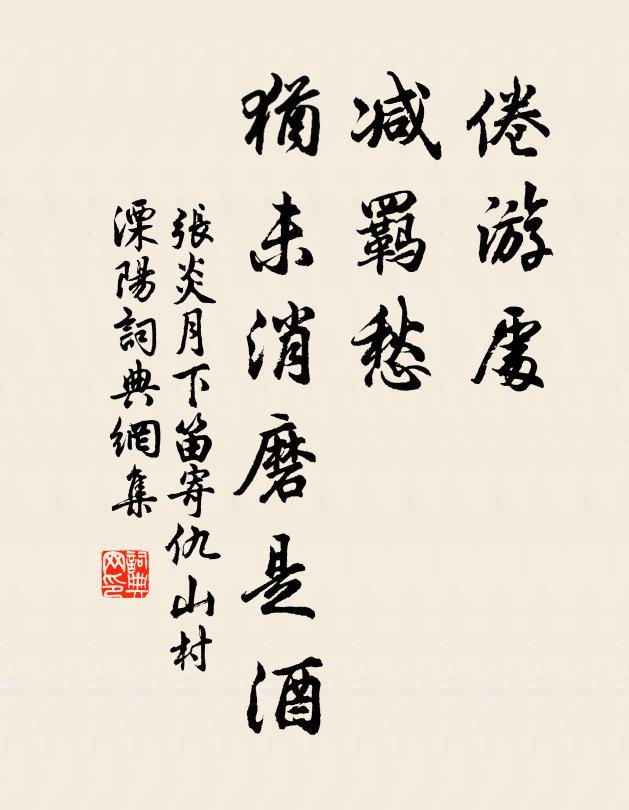 倦游處
减羈愁
猶未消磨是酒
張炎月下笛寄仇山村
溧陽詞典網集
詞典網印